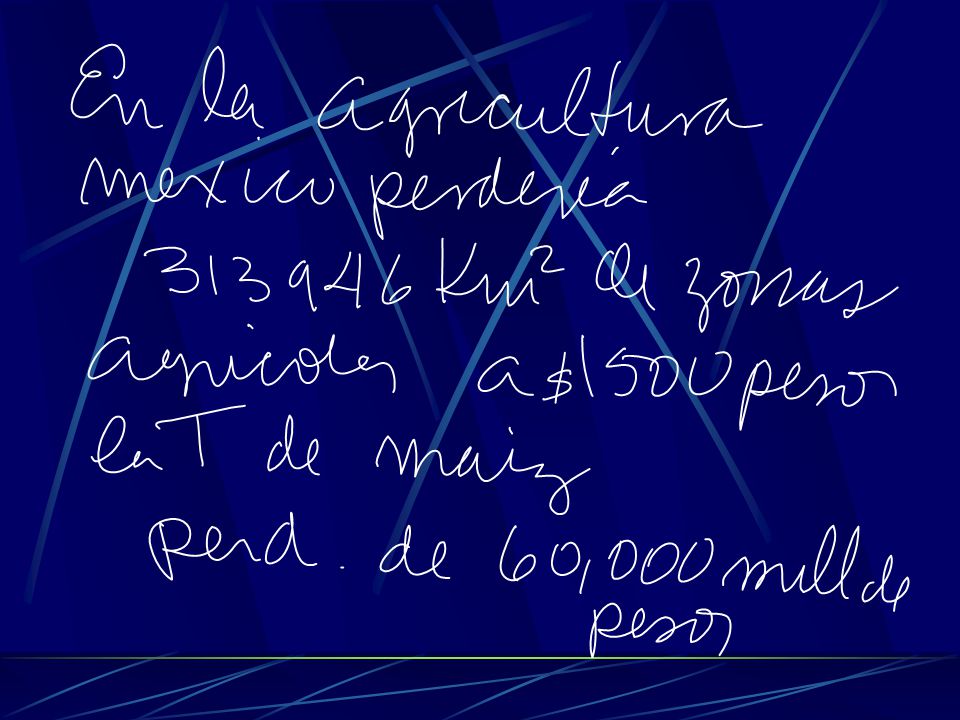 En la agricultura
mexico perdería
313946 Km² de zonas
agricolas a $1500 pesos
la T de maiz
perd. de 60,000 mill de
pesos